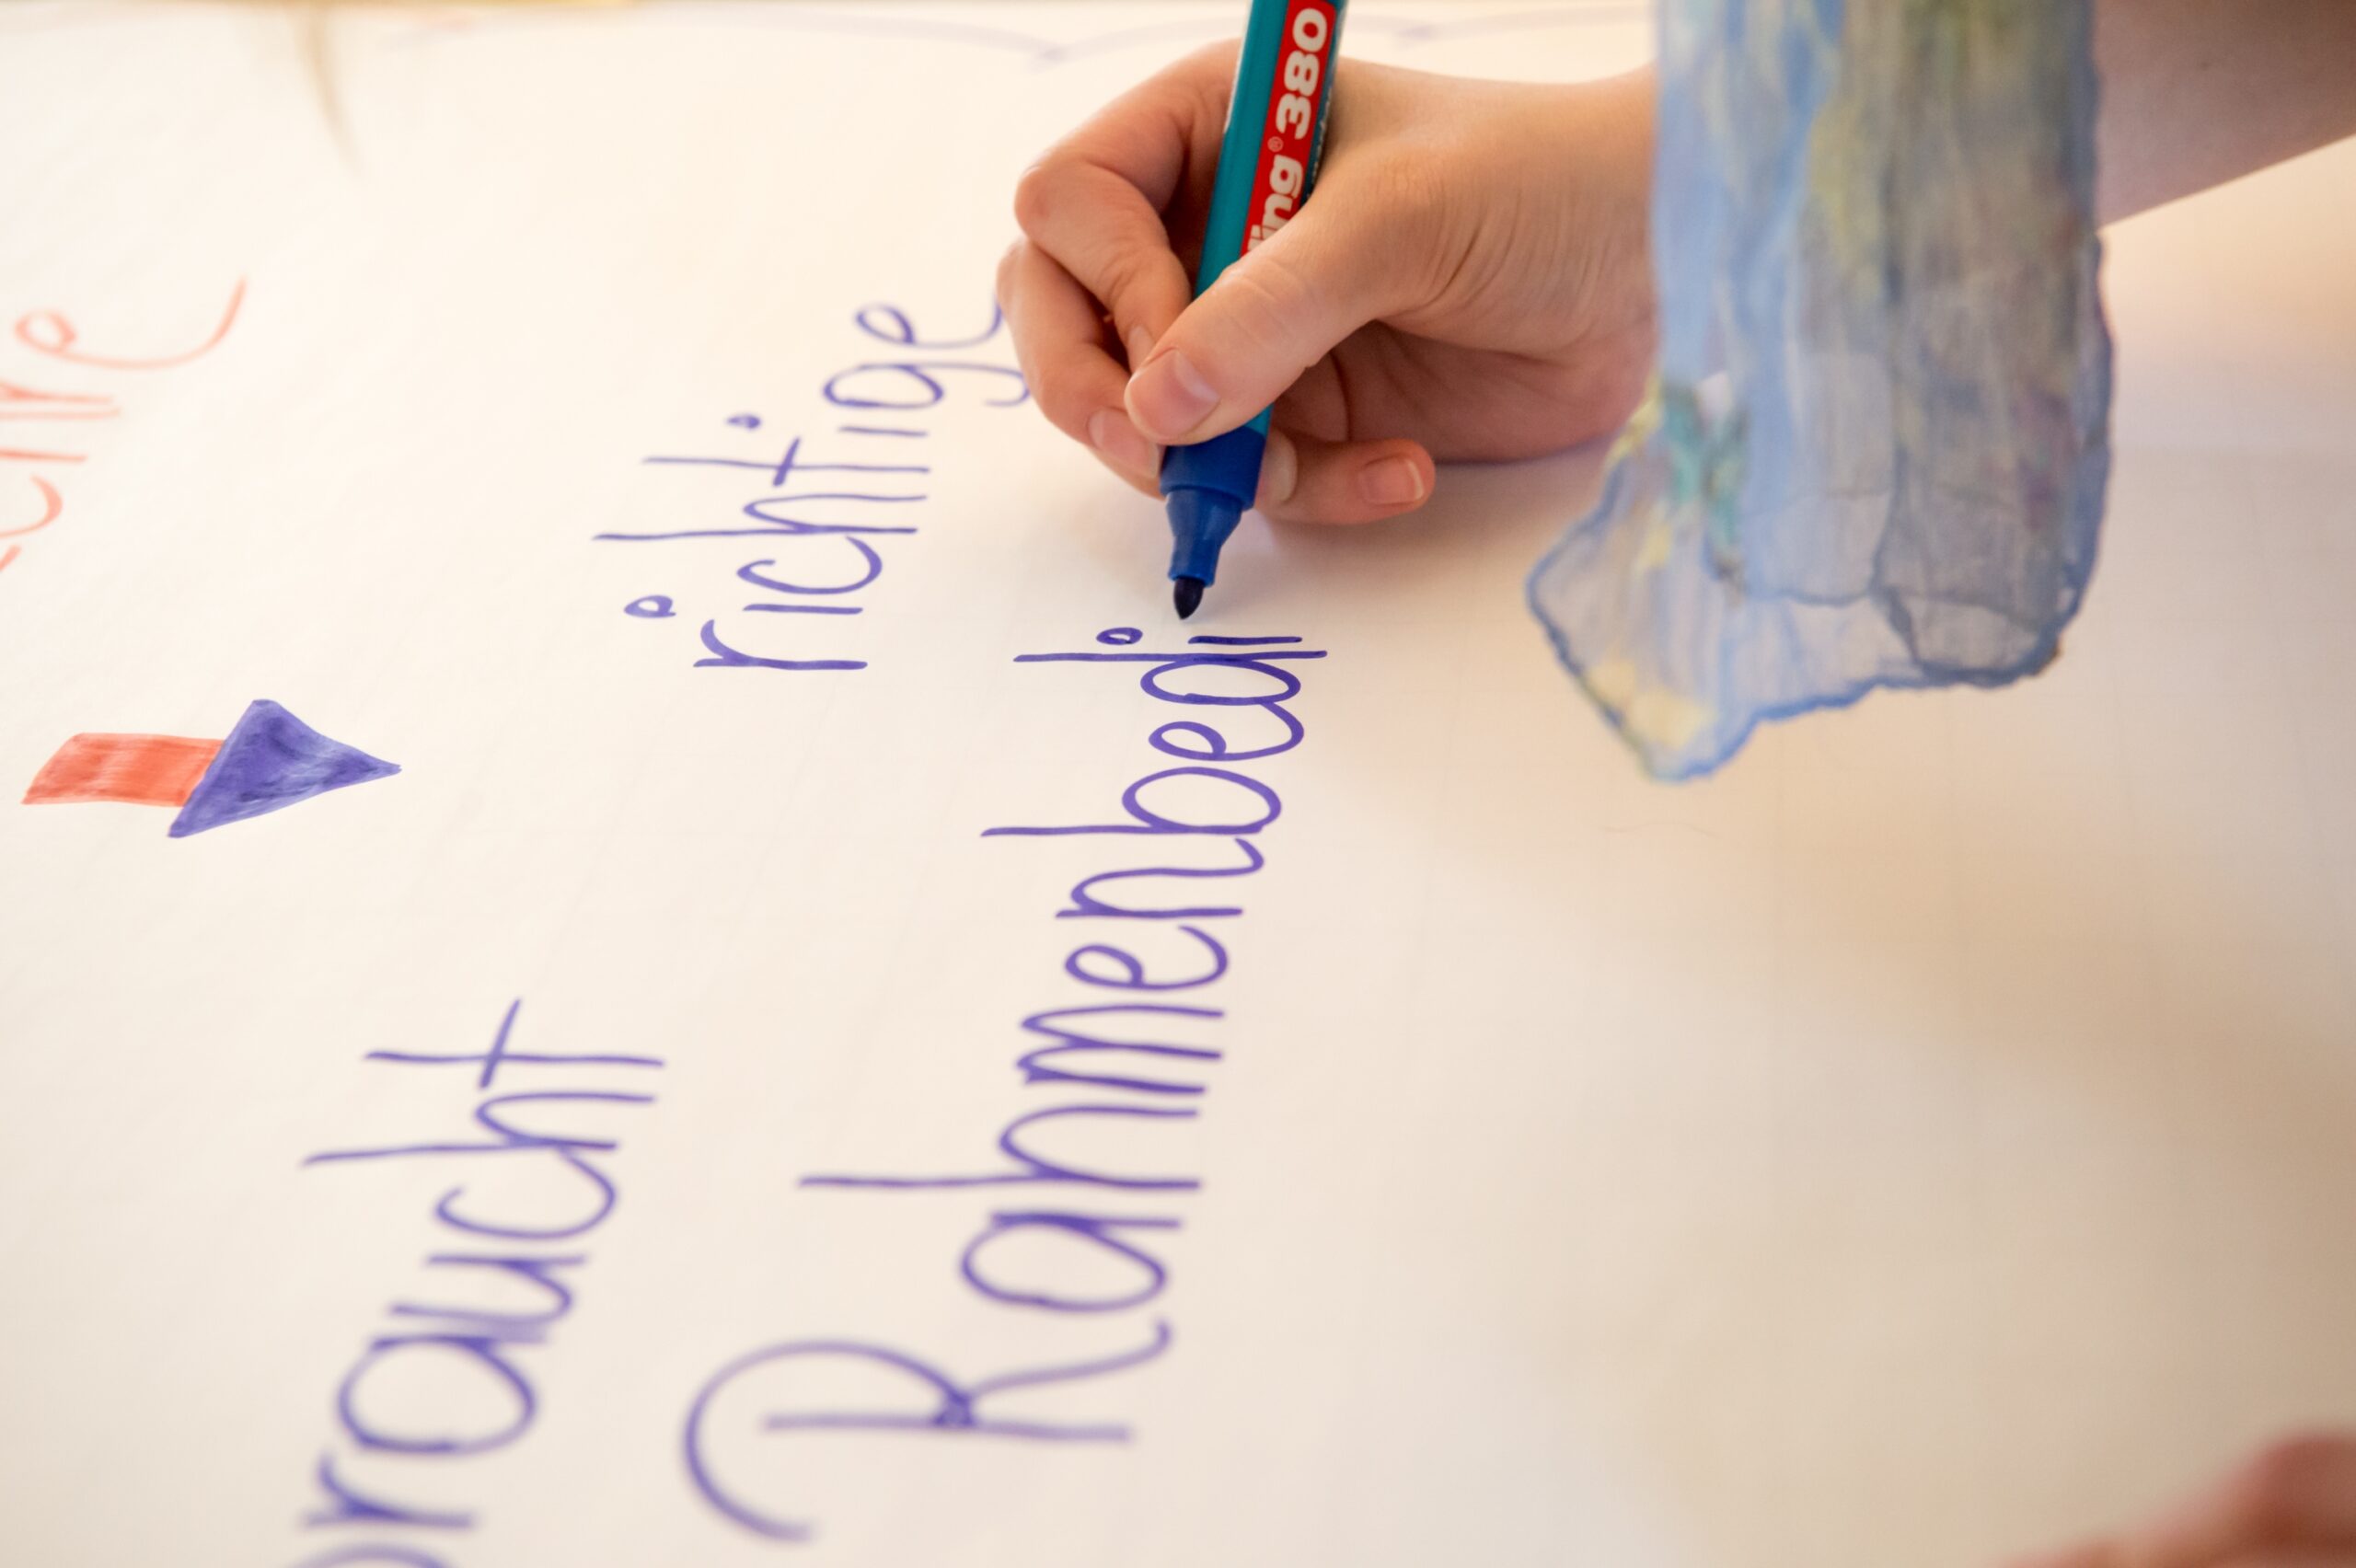 braucht richtige
Rahmenbedi
ing® 380